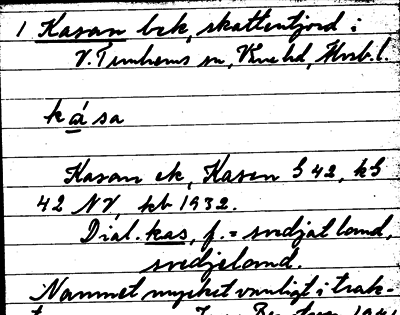 1 Kasan bek, skattenjord i
V. Tunhems sn, Väne hd, Älvsb. l.
kása
Kasan ek, Kasen G 42, kG
42 NV, kb 1932.
Dial. kas, f. = svedjat land,
svedjeland.
Namnet mycket vanligt i trak-